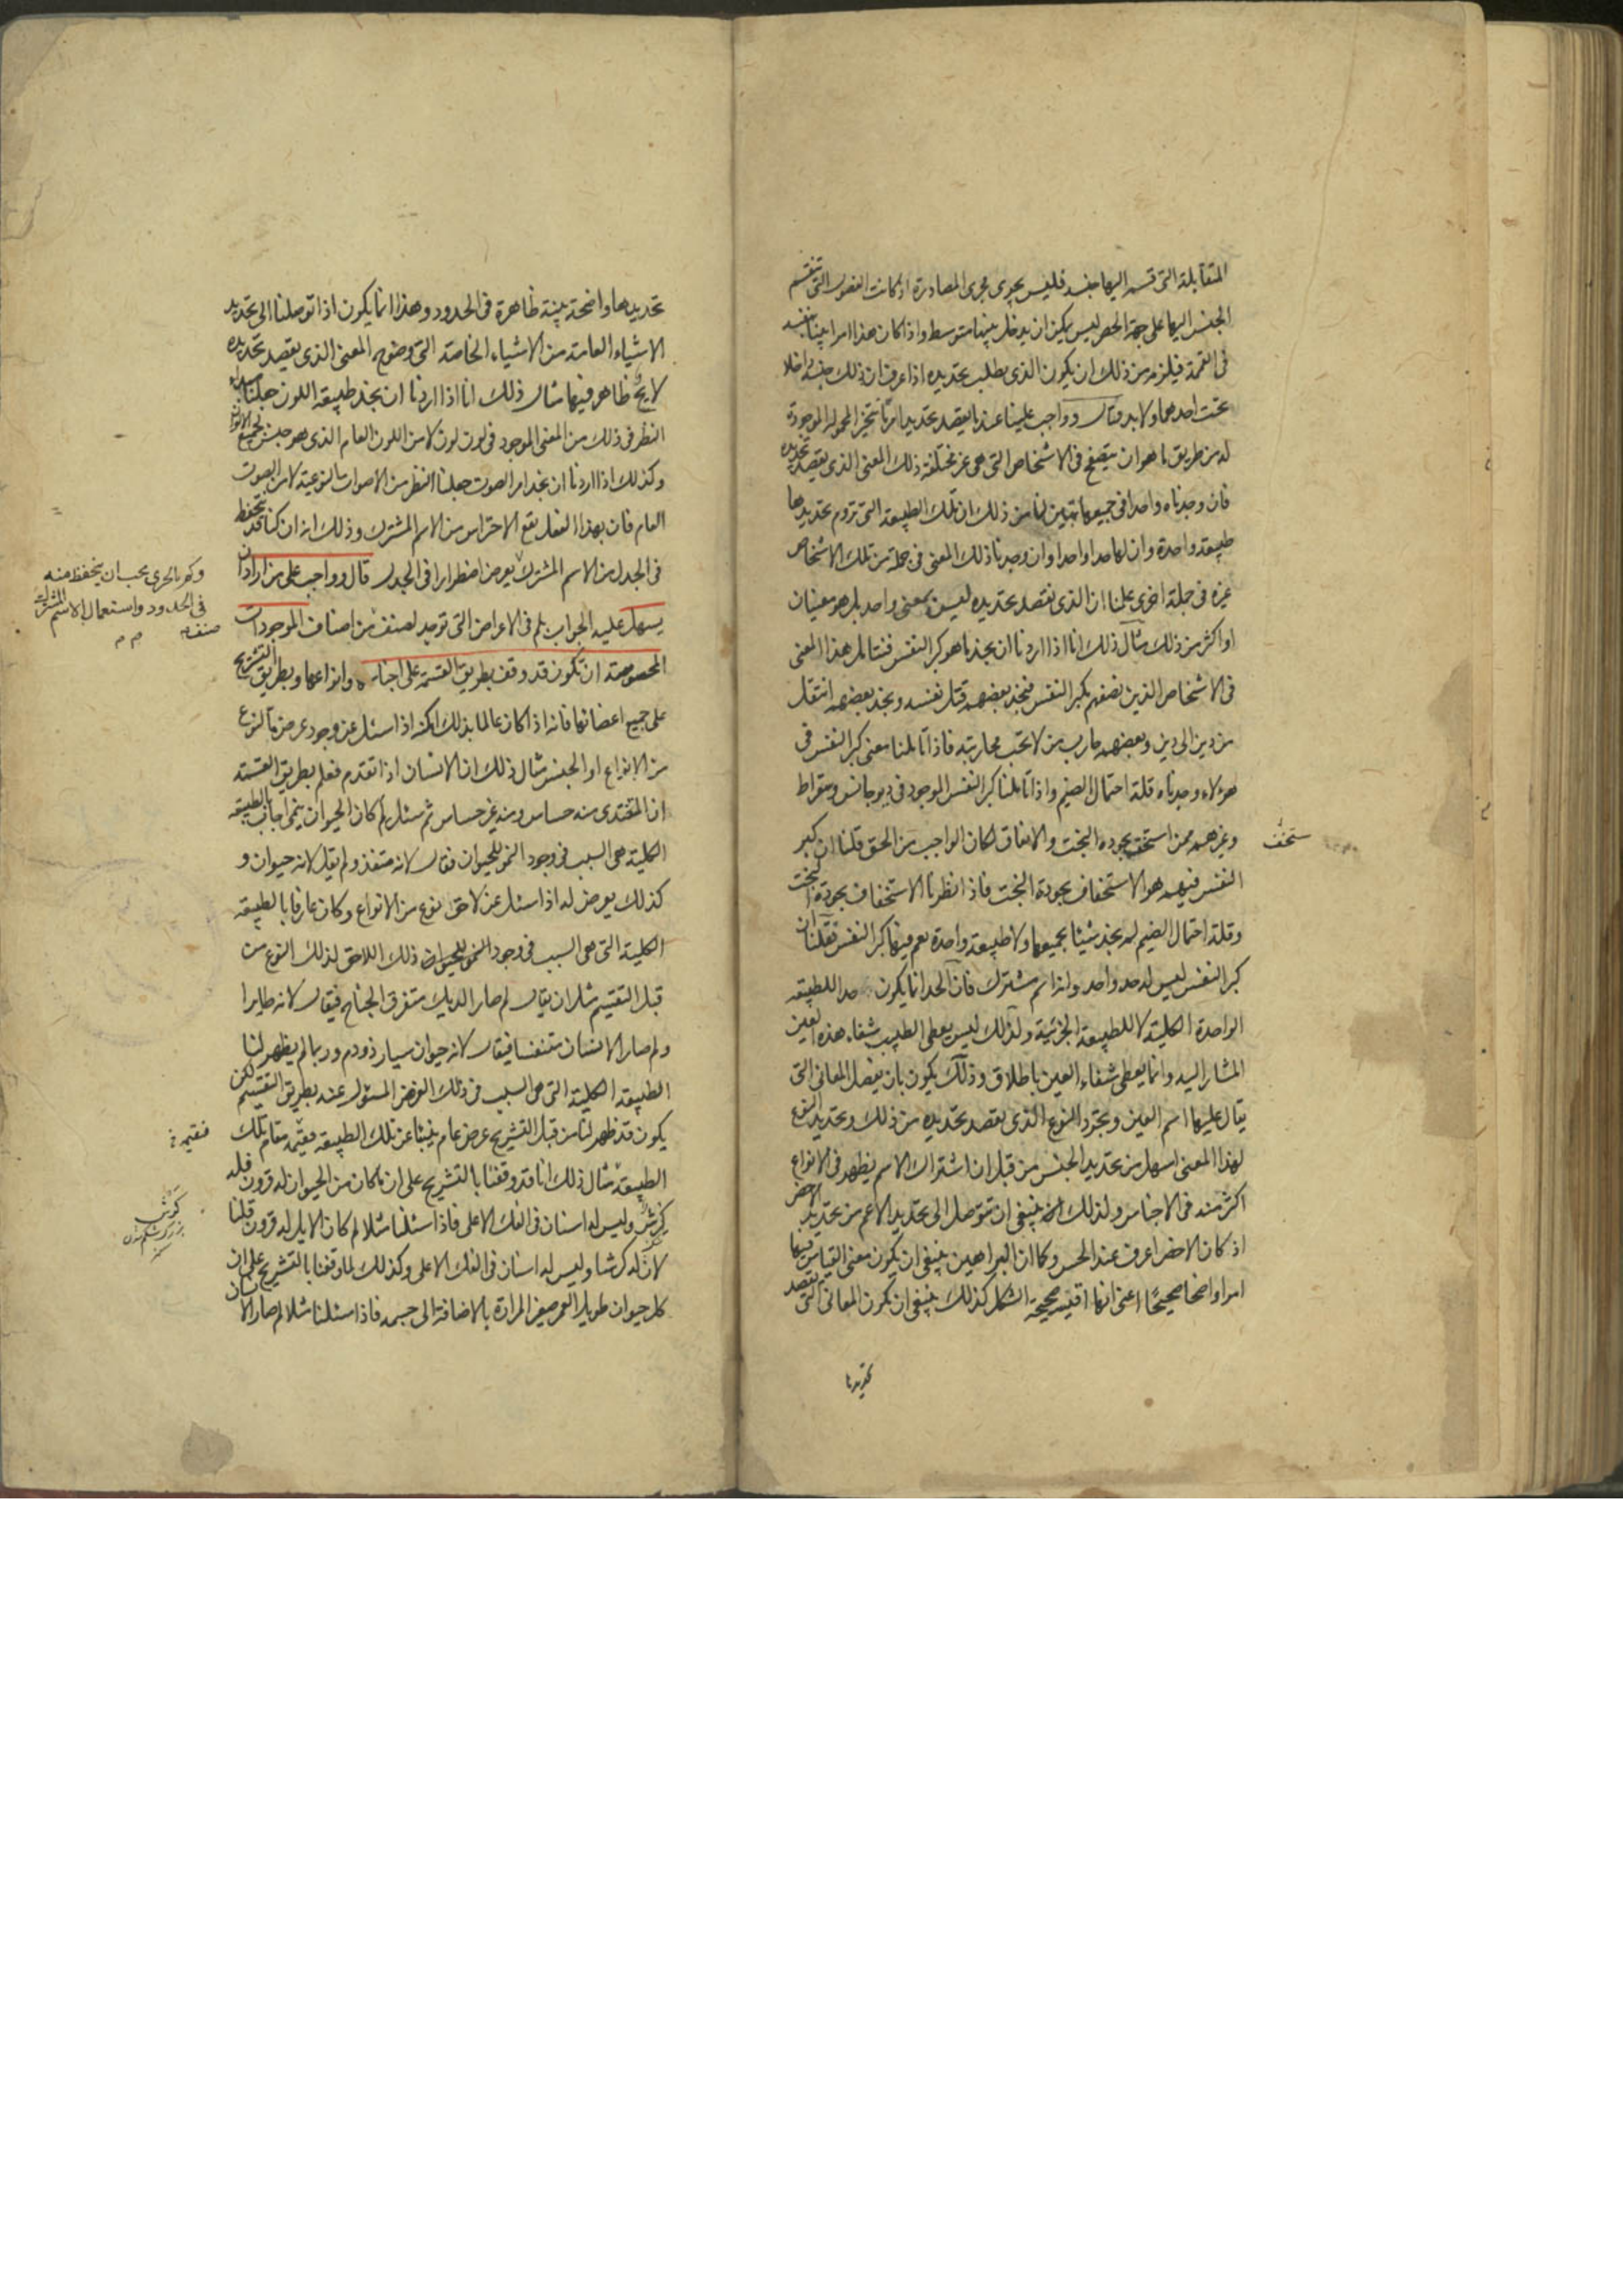 المتقابلة التى قسم اليها جنسه فليس يجرى مجرى المصادرة اذ كانت الفصول التى تنقسم
الجنس اليها على جهة الحصر ليس يمكن ان يدخل بينها متوسط واذا كان هذا امرا بينا بنفسه
فى القسمة فيلزم من ذلك ان يكون الذى يطلب تحديده اذا عرف ان ذلك جنسه داخلا
تحت احدهما ولا بد قال وواجب علينا عندما يقصد تحديد امر ما بتخير المحمولات الموجودة
له من طريق ما هو ان يتصفح فى الاشخاص التى هى غير مختلفة ذلك المعنى الذى يقصد تحديده
فان وجدناه واحدا فى جميعها تبين لنا من ذلك ان تلك الطبيعة التى نروم تحديدها
طبيعة واحدة وان لها حدا واحدا وان وجدنا ذلك المعنى فى جملة من تلك الاشخاص
غيره فى جملة اخرى علمنا ان الذى نقصد تحديده ليس بمعنى واحد بل هو معنيان
او اكثر من ذلك مثال ذلك انا اذا اردنا ان نحد ما هو كبر النفس فنتامل هذا المعنى
فى الاشخاص الذين نصفهم بكبر النفس فنجد بعضهم قتل نفسه ونجد بعضهم انتقل
من دين الى دين وبعضهم حارب من لا تجب محاربته فاذا تاملنا معنى كبر النفس فى
هولاء وجدناه قلة احتمال الضيم واذا تاملنا كبر النفس الموجود فى ديوجانس وسقراط
وغيرهم ممن استخف بجودة البخت والاتفاق لكان الواجب من الحق قلنا ان كبر
ستخف
النفس فيهم هو الاستخفاف بجودة البخت فاذا نظرنا الاستخفاف بجودة البخت
وقلة احتمال الضيم لم نجد شيئا يجمعها ولا طبيعة واحدة يعم فيها كبر النفس فقلنا ان
كبر النفس ليس له حد واحد وانه اسم مشترك فان الحد انما يكون حدا للطبيعة
الواحدة الكلية لا للطبيعة الجزئية ولذلك ليس يعطى الطبيب شفاء هذه العين
المشار اليه وانما يعطى شفاء العين باطلاق وذلك يكون بان يفصل المعانى التى
يقال عليها اسم العين ويجرد النوع الذى يقصد تحديده من ذلك وتحديد النوع
لهذا المعنى اسهل من تحديد الجنس من قبل ان اشتراك الاسم يظهر فى الانواع
اكثر منه فى الاجناس ولذلك ينبغى ان نتوصل الى تحديد الاعم من تحديد الاخص
اذ كان الاخص اعرف عند الحس وكما ان البراهين ينبغى ان يكون معنى القياس فيها
امرا واضحا صحيحا اعنى انها اقيسة صحيحة الشكل كذلك ينبغى ان تكون المعانى التى نقصد
تحديدها
تحديدها واضحة بينة ظاهرة فى الحدود وهذا انما يكون اذا توصلنا الى تحديد
الاشياء العامة من الاشياء الخاصة التى وضوح المعنى الذى يقصد تحديده
لايح ظاهر فيها مثال ذلك انا اذا اردنا ان نحد طبيعة اللون جعلنا
النظر فى ذلك من المعنى الموجود فى لون لون لا من اللون العام الذى هو جنس لجميع الالوان
وكذلك اذا اردنا ان نحد امر الصوت جعلنا النظر من الاصوات النوعية لا من الصوت
العام فان بهذا الفعل يقع الاحتراس من الاسم المشترك وذلك انه ان كنا قد نتحفظ
فى الجدل من الاسم المشترك يعرض اضطرارا فى الجدل قال وواجب على من اراد ان
وكم بالحرى يجب ان يتحفظ منه
فى الحدود واستعمال الاسم المشترك
يسهل عليه الجواب بلم فى الاعراض التى توجد لصنف من اصناف الموجودات
المخصوصة ان تكون قد وقف بطريق القسمة على اجناسه وانواعها وبطريق التشريح
على جميع اعضائها فانه اذا كان عالما بذلك امكنه اذا سئل عن وجود عرض ما لنوع
من الانواع او الجنس مثال ذلك ان الانسان اذا تقدم فعلم بطريق القسمة
ان المغتذى منه حساس ومنه غير حساس ثم سئل لم كان الحيوان ينمى اجاب بالطبيعة
الكلية هى السبب فى وجود النمو للحيوان فقال لانه متغذ ولم يقل لانه حيوان و
كذلك يعرض له اذا سئل عن لاحق نوع من الانواع وكان عارفا بالطبيعة
الكلية التى هى السبب فى وجود ذلك اللاحق لذلك النوع من
قبل التقسيم مثل ان يقال لم صار الديك متفرق الجناح فيقال لانه طايرا
ولم صار الانسان متنفسا فيقال لانه حيوان سيار ذو دم وربما لم يظهر لنا
الطبيعة الكلية التى هى السبب فى ذلك العرض المسئول عنه بطريق التقسيم لكن
يكون قد ظهر لنا من قبل التشريح عرض عام ينبئنا عن تلك الطبيعة فنقيمه مقام تلك
فنقيمه
الطبيعة مثال ذلك انا قد وقفنا بالتشريح على ان ما كان من الحيوان له قرون فله
كرش وليس له اسنان فى الفك الاعلى فاذا سئلنا مثلا لم كان الايل له قرون قلنا
لان له كرشا وليس له اسنان فى الفك الاعلى وكذلك لما وقفنا بالتشريح على ان
كل حيوان طويل العمر صغير المرارة بالاضافة الى جسمه فاذا سئلنا مثلا لم صار الانسان